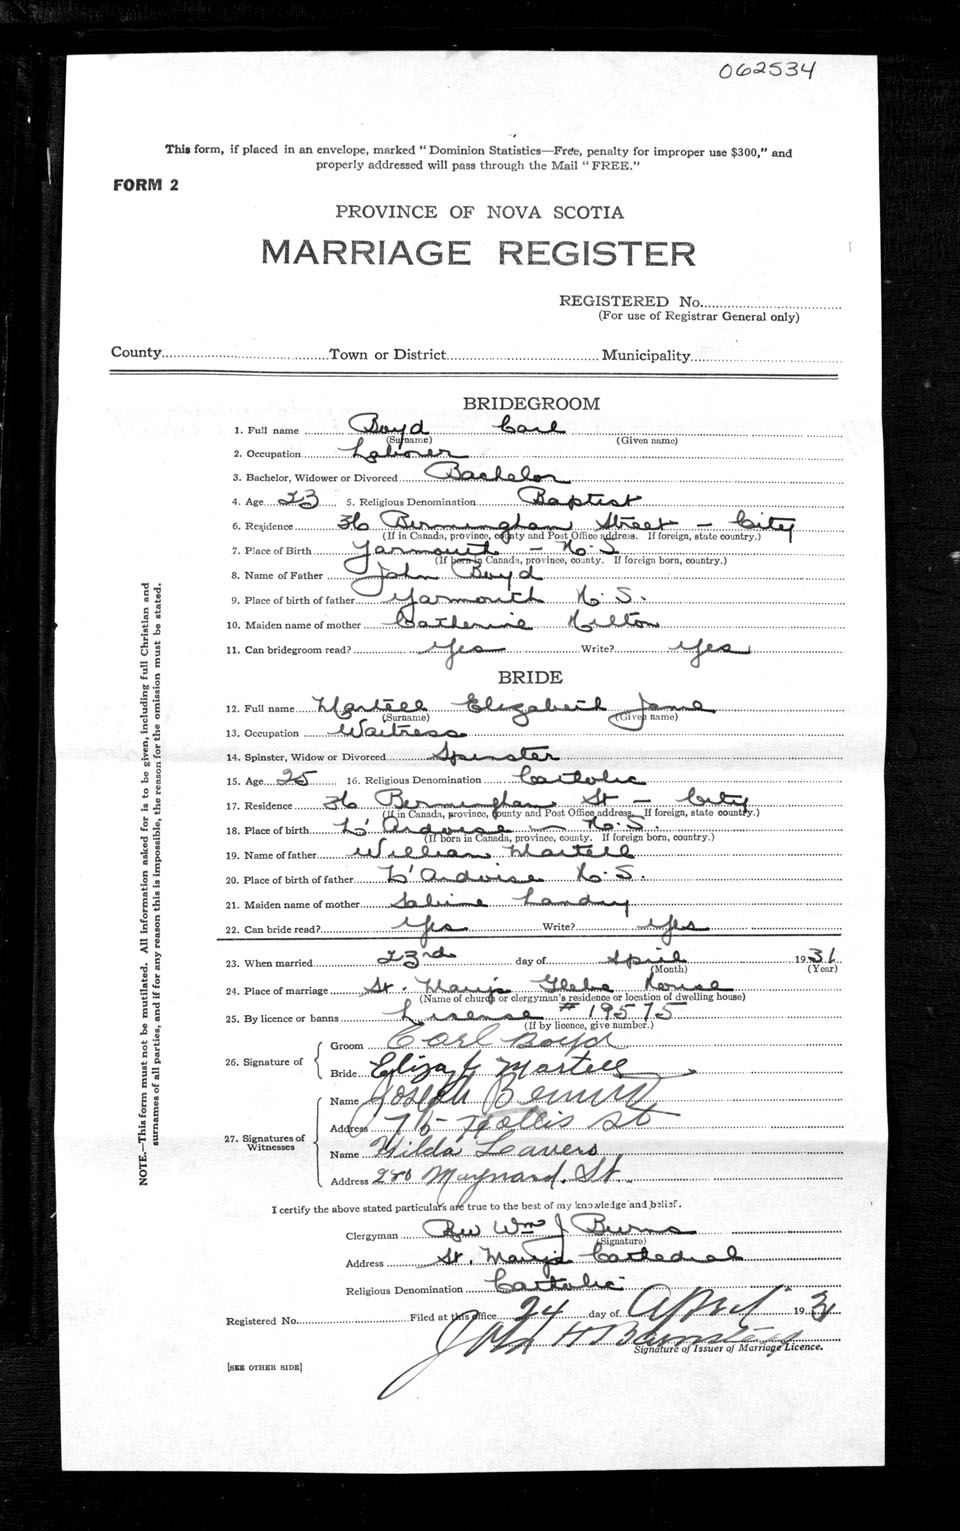 062534
This form, if placed in an envelope, marked "Dominion Statistics—Free, penalty for improper use $300," and
properly addressed will pass through the Mail "FREE."
FORM 2
PROVINCE OF NOVA SCOTIA
MARRIAGE REGISTER
REGISTERED No.
(For use of Registrar General only)
County Town or District Municipality
NOTE.—This form must not be mutilated. All information asked for is to be given, including full Christian and
surnames of all parties, and if for any reason this is impossible, the reason for the omission must be stated.
BRIDEGROOM
1. Full name Boyd Carl
(Surname) (Given name)
2. Occupation Laborer
3. Bachelor, Widower or Divorced Bachelor
4. Age 23 5. Religious Denomination Baptist
6. Residence 36 Bermingham Street - City
(If in Canada, province, county and Post Office address. If foreign, state country.)
7. Place of Birth Yarmouth - N.S
(If born in Canada, province, county. If foreign born, country.)
8. Name of Father John Boyd
9. Place of birth of father Yarmouth N.S.
10. Maiden name of mother Catherine Hilton
11. Can bridegroom read? Yes Write? Yes
BRIDE
12. Full name Martell Elizabeth Jane
(Surname) (Given name)
13. Occupation Waitress
14. Spinster, Widow or Divorced Spinster
15. Age 25 16. Religious Denomination Catholic
17. Residence 36 Bermingham St - City
(If in Canada, province, county and Post Office address. If foreign, state country.)
18. Place of birth L'Ardoise - N.S.
(If born in Canada, province, county. If foreign born, country.)
19. Name of father William Martell
20. Place of birth of father L'Ardoise N.S.
21. Maiden name of mother Sabine Landry
22. Can bride read? Yes Write? Yes
23. When married 23rd day of April 1931
(Month) (Year)
24. Place of marriage St. Mary's Glebe House
(Name of church or clergyman's residence or location of dwelling house)
25. By licence or banns Lisense # 19575
(If by licence, give number.)
26. Signature of
Groom Carl Boyd
Bride Eliza J Martell
27. Signatures of Witnesses
Name Joseph
Address Hollis St
Name Hilda Leavers
Address 280 Maynard. St
I certify the above stated particulars are true to the best of my knowledge and belief.
Clergyman Rev Wm J Burns
(Signature)
Address St. Mary's Cathedral
Religious Denomination Catholic
Registered No. Filed at this office 24 day of April 1931
Signature of Issuer of Marriage Licence.
[SEE OTHER SIDE]